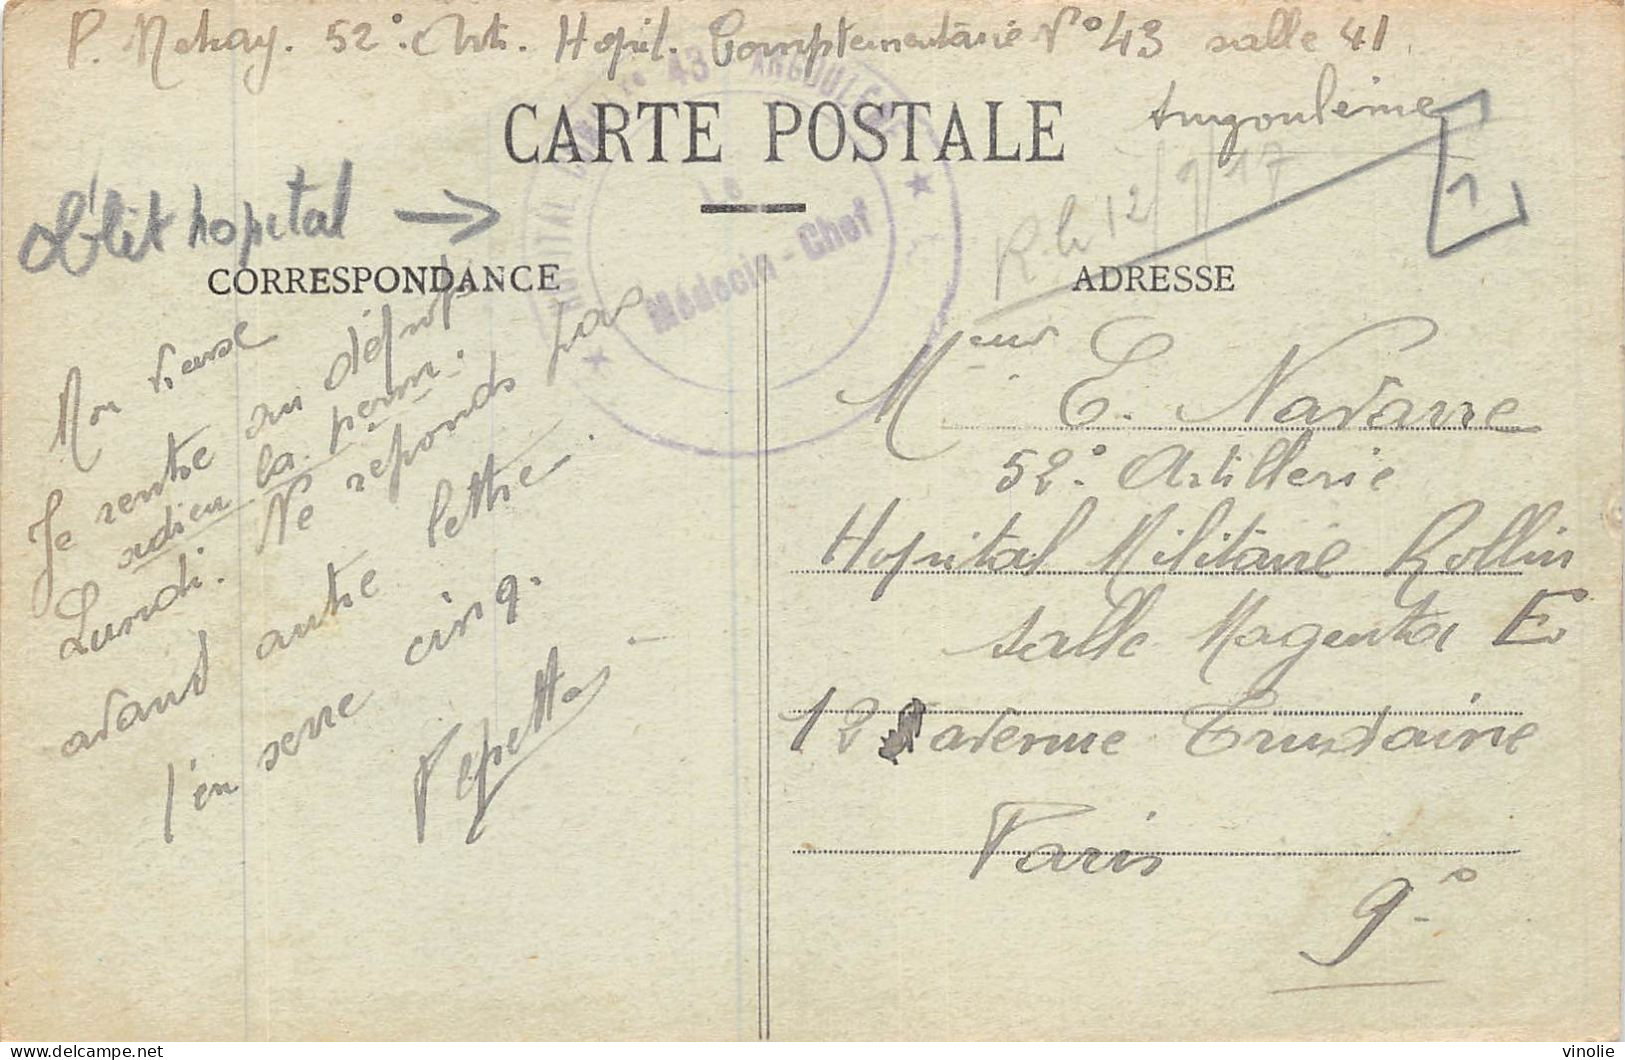 P. Mehay. 52°. Art. Hopit. Complementaire N° 43 salle 41.
Angoulème
CARTE POSTALE
HOPITAL COMP 43 ANGOULEME
Le
Médecin-Chef
12/1/17
1
oblit hopital →
CORRESPONDANCE
ADRESSE
Mon vieux
Je rentre au dépôt
adieu la perm.
Lundi. Ne reponds pas
avant autre lettre.
t'en serre cinq.
Pepette
Meur E. Navarre
52° Artillerie
Hopital Militaire Rollin
salle Magenta E
12 avenue Trudaine
Paris
9°
vinolie